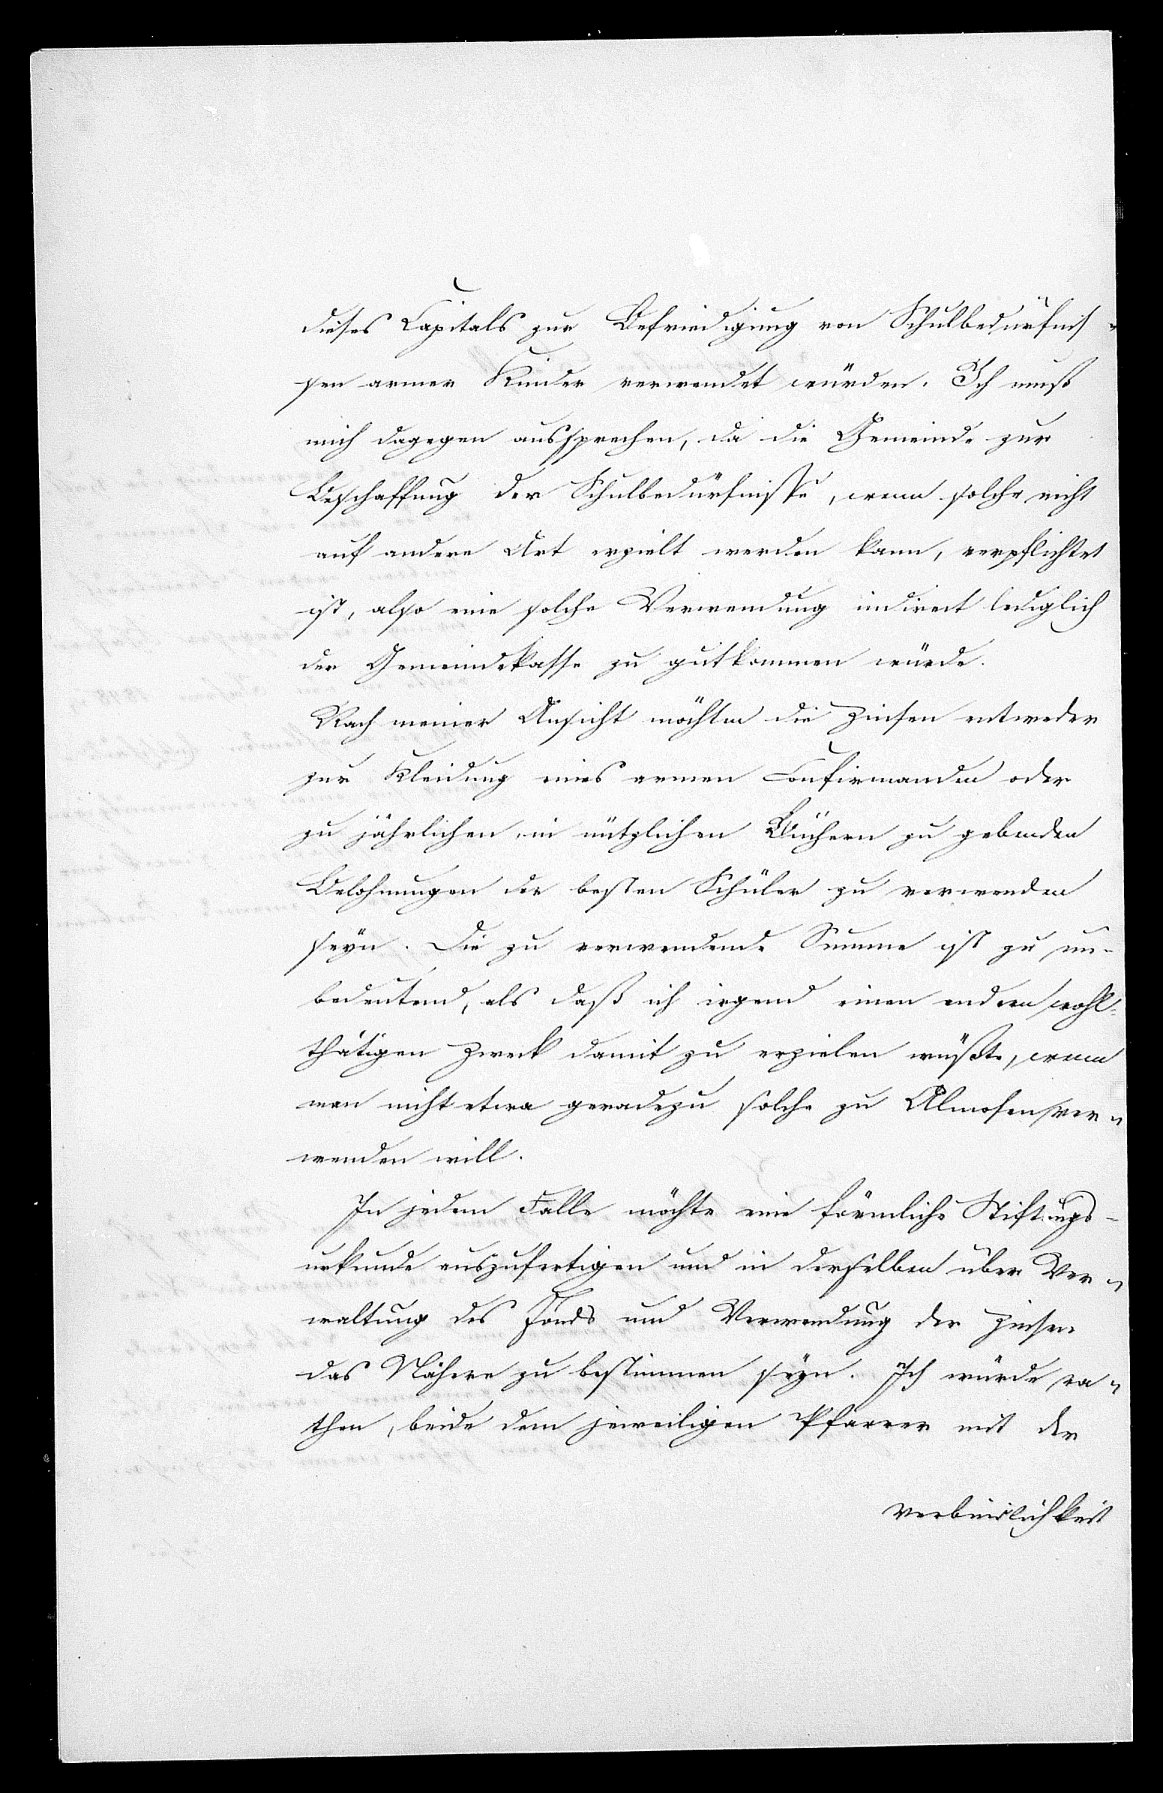 dieses Capitals zur Befriedigung von Schulbedürfnis-
sen armer Kinder verwendet würden. Ich muß
mich dagegen aussprechen, da die Gemeinde zur
Beschaffung der Schulbedürfnisse, wenn solche nicht
auf andere Art erzielt werden kann, verpflichtet
ist, also eine solche Verwendung indirect lediglich
der Gemeindekasse zu gutkommen würde.
Nach meiner Ansicht möchten die Zinsen entweder
zur Kleidung eines armen Confirmanden oder
zu jährlichen, in nützlichen Büchern zu gebenden
Belohnungen der besten Schüler zu verwenden
seyn. Die zu verwendende Summe ist zu un-
bedeutend, als daß ich irgend einen andern wohl-
thätigen Zweck damit zu erzielen wüßte, wenn
man nicht etwa geradezu solche zu Almosen ver-
wenden will.
In jedem Falle möchte eine förmliche Stiftungs-
urkunde auszufertigen und in derselben über Ver-
waltung des Fonds und Verwendung der Zinsen
das Nähere zu bestimmen seyn. Ich würde ra-
then, beide dem jeweiligen Pfarrer mit der
Verbindlichkeit